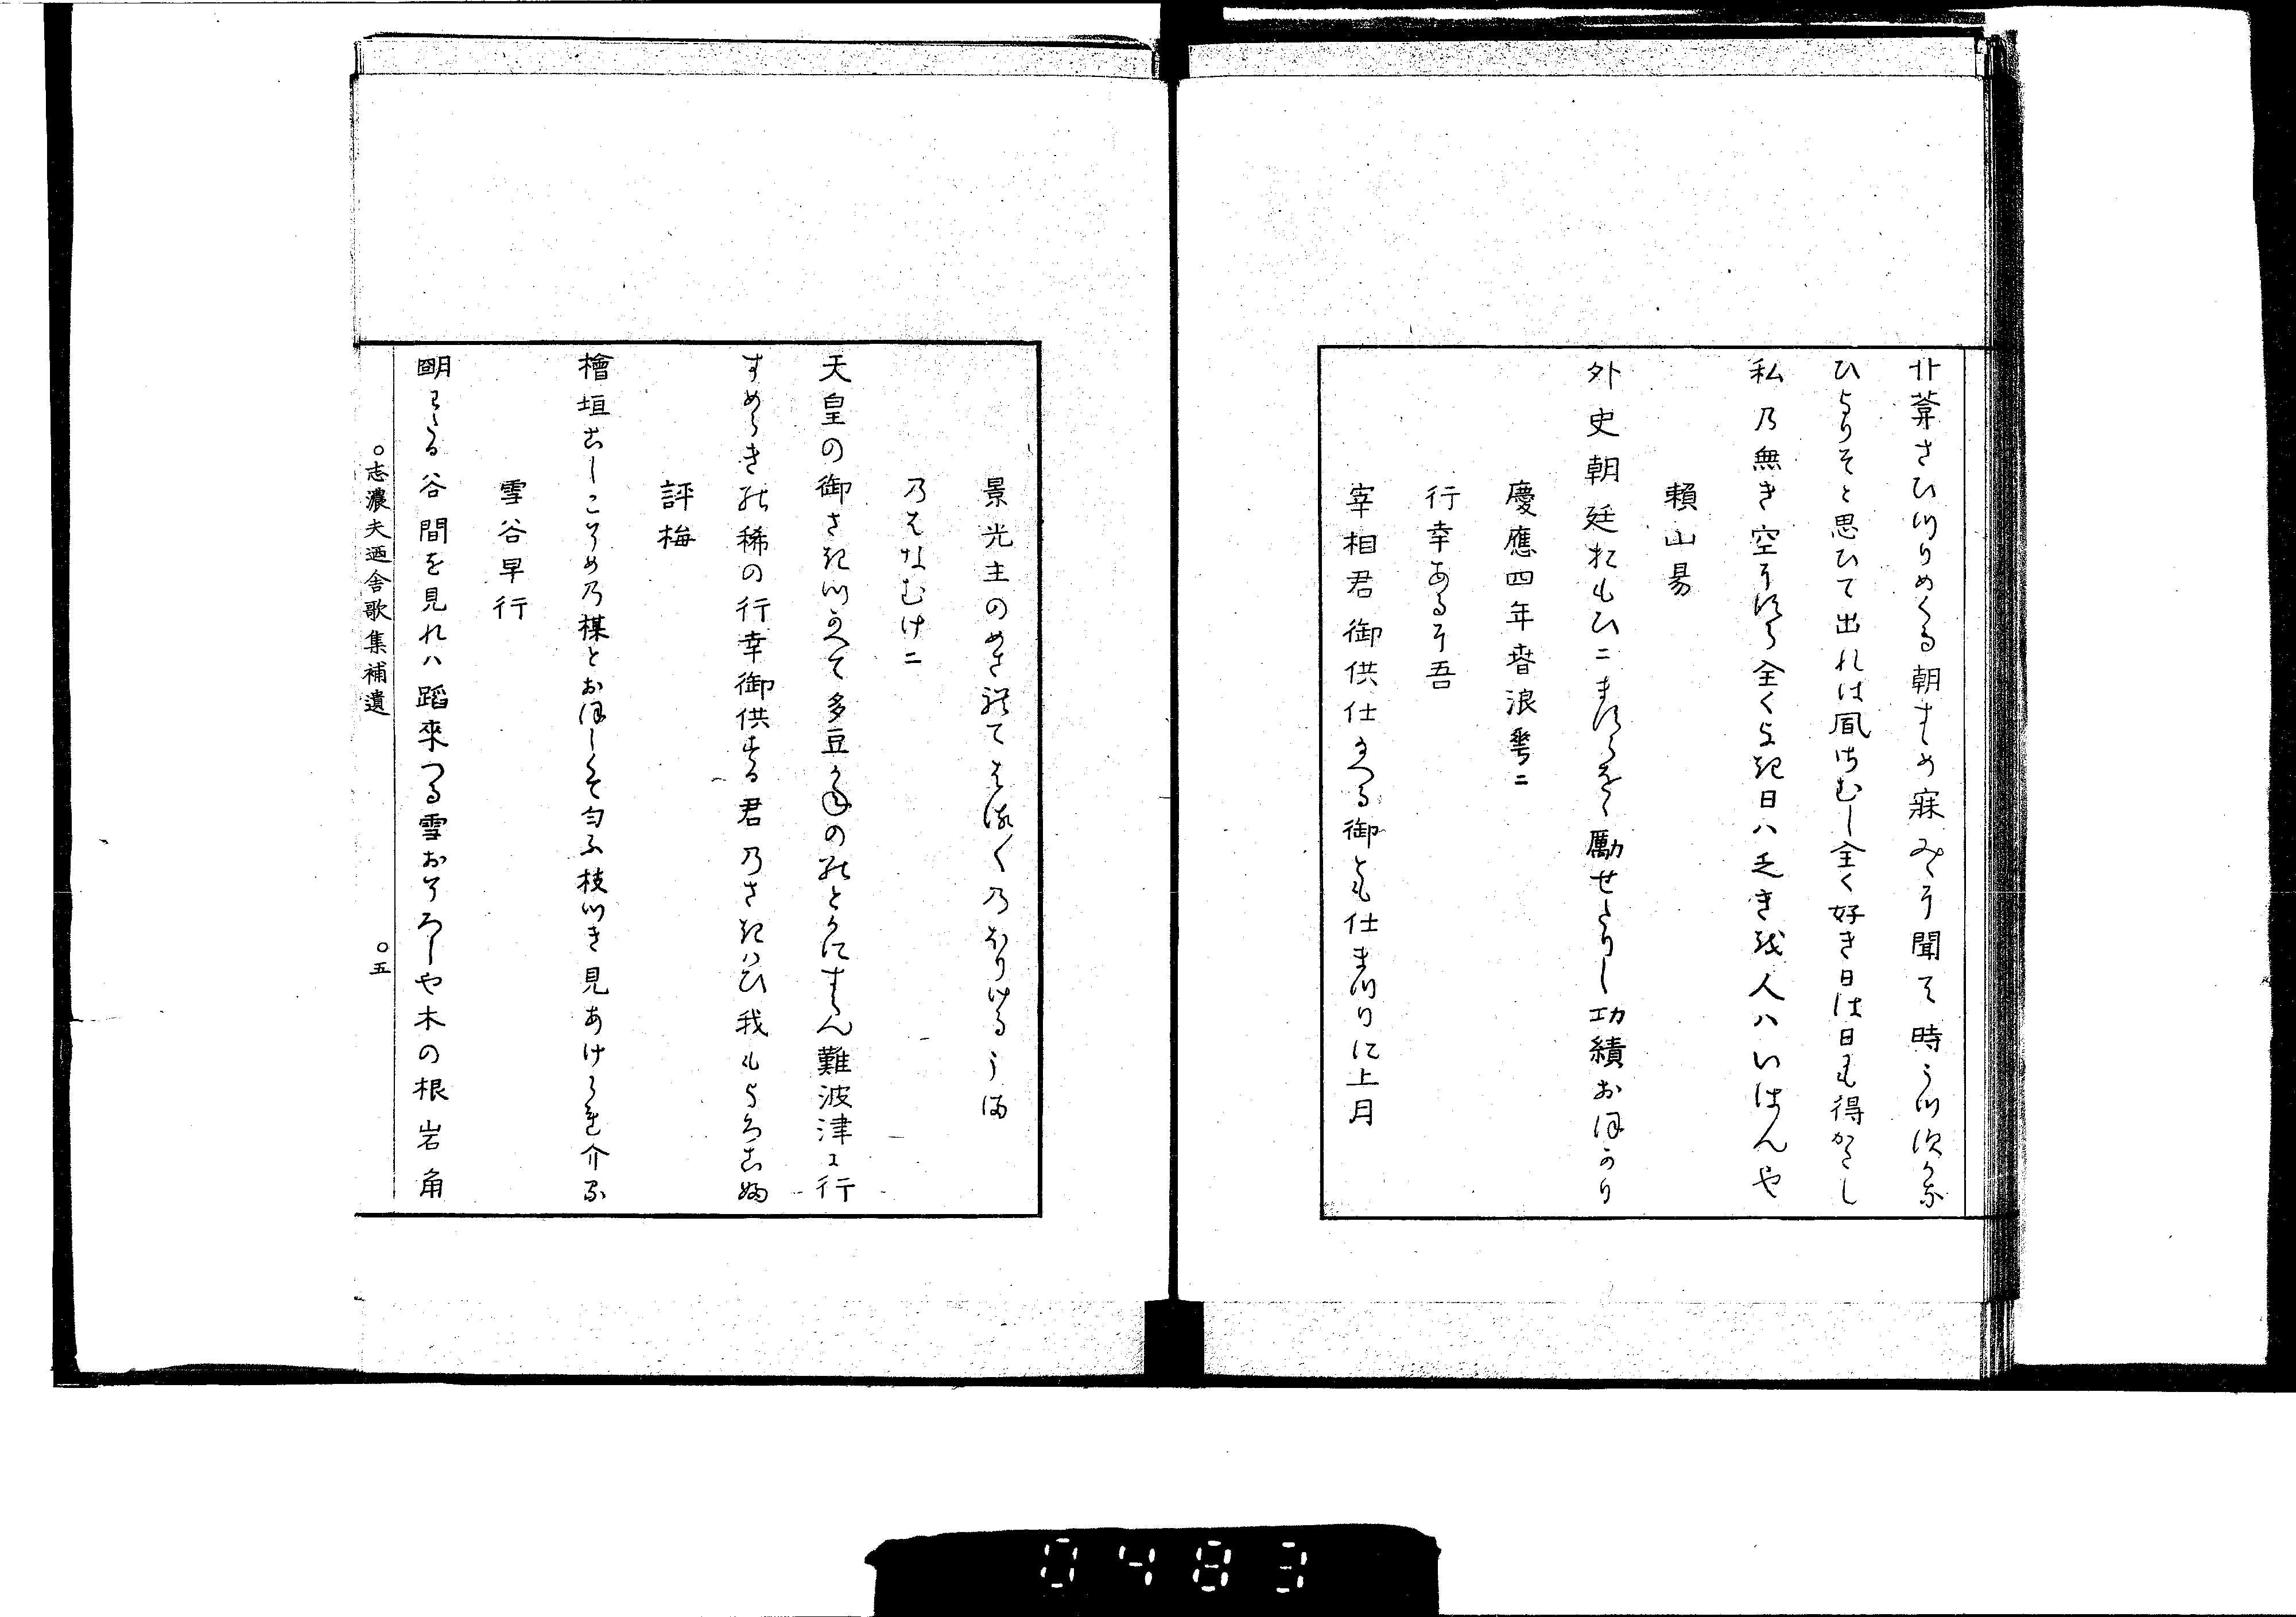 廿葦さひ川りめくる朝すゝめ寐みゝ尓聞て時うつ次かな
ひよりそと思ひて出れは風はむし全く好き日は日も得かたし
私乃無き空尓すら全くよき日ハ乏き越人ハいはんや
賴山昜
外史朝廷おもひニますらをを勵せたりし功績おほかり
慶應四年春浪華ニ
行幸ある尓吾
宰相君御供仕へる御とも仕まつりに上月
景光主のめされてはる〱乃ほりけるうま
乃はなむけニ
天皇の御さきつかへて多豆かねの能とかにすらん難波津に行
すめらき能稀の行幸御供する君乃さきハひ我もよろこふ
評梅
檜垣古しこそめ乃楳とおほしくて匂ふ枝つき見あけられ介る
雪谷早行
朙わたる谷間を見れハ蹈來つる雪おそろしや木の根岩角
○志濃夫廼舍歌集補遺
○五
0483